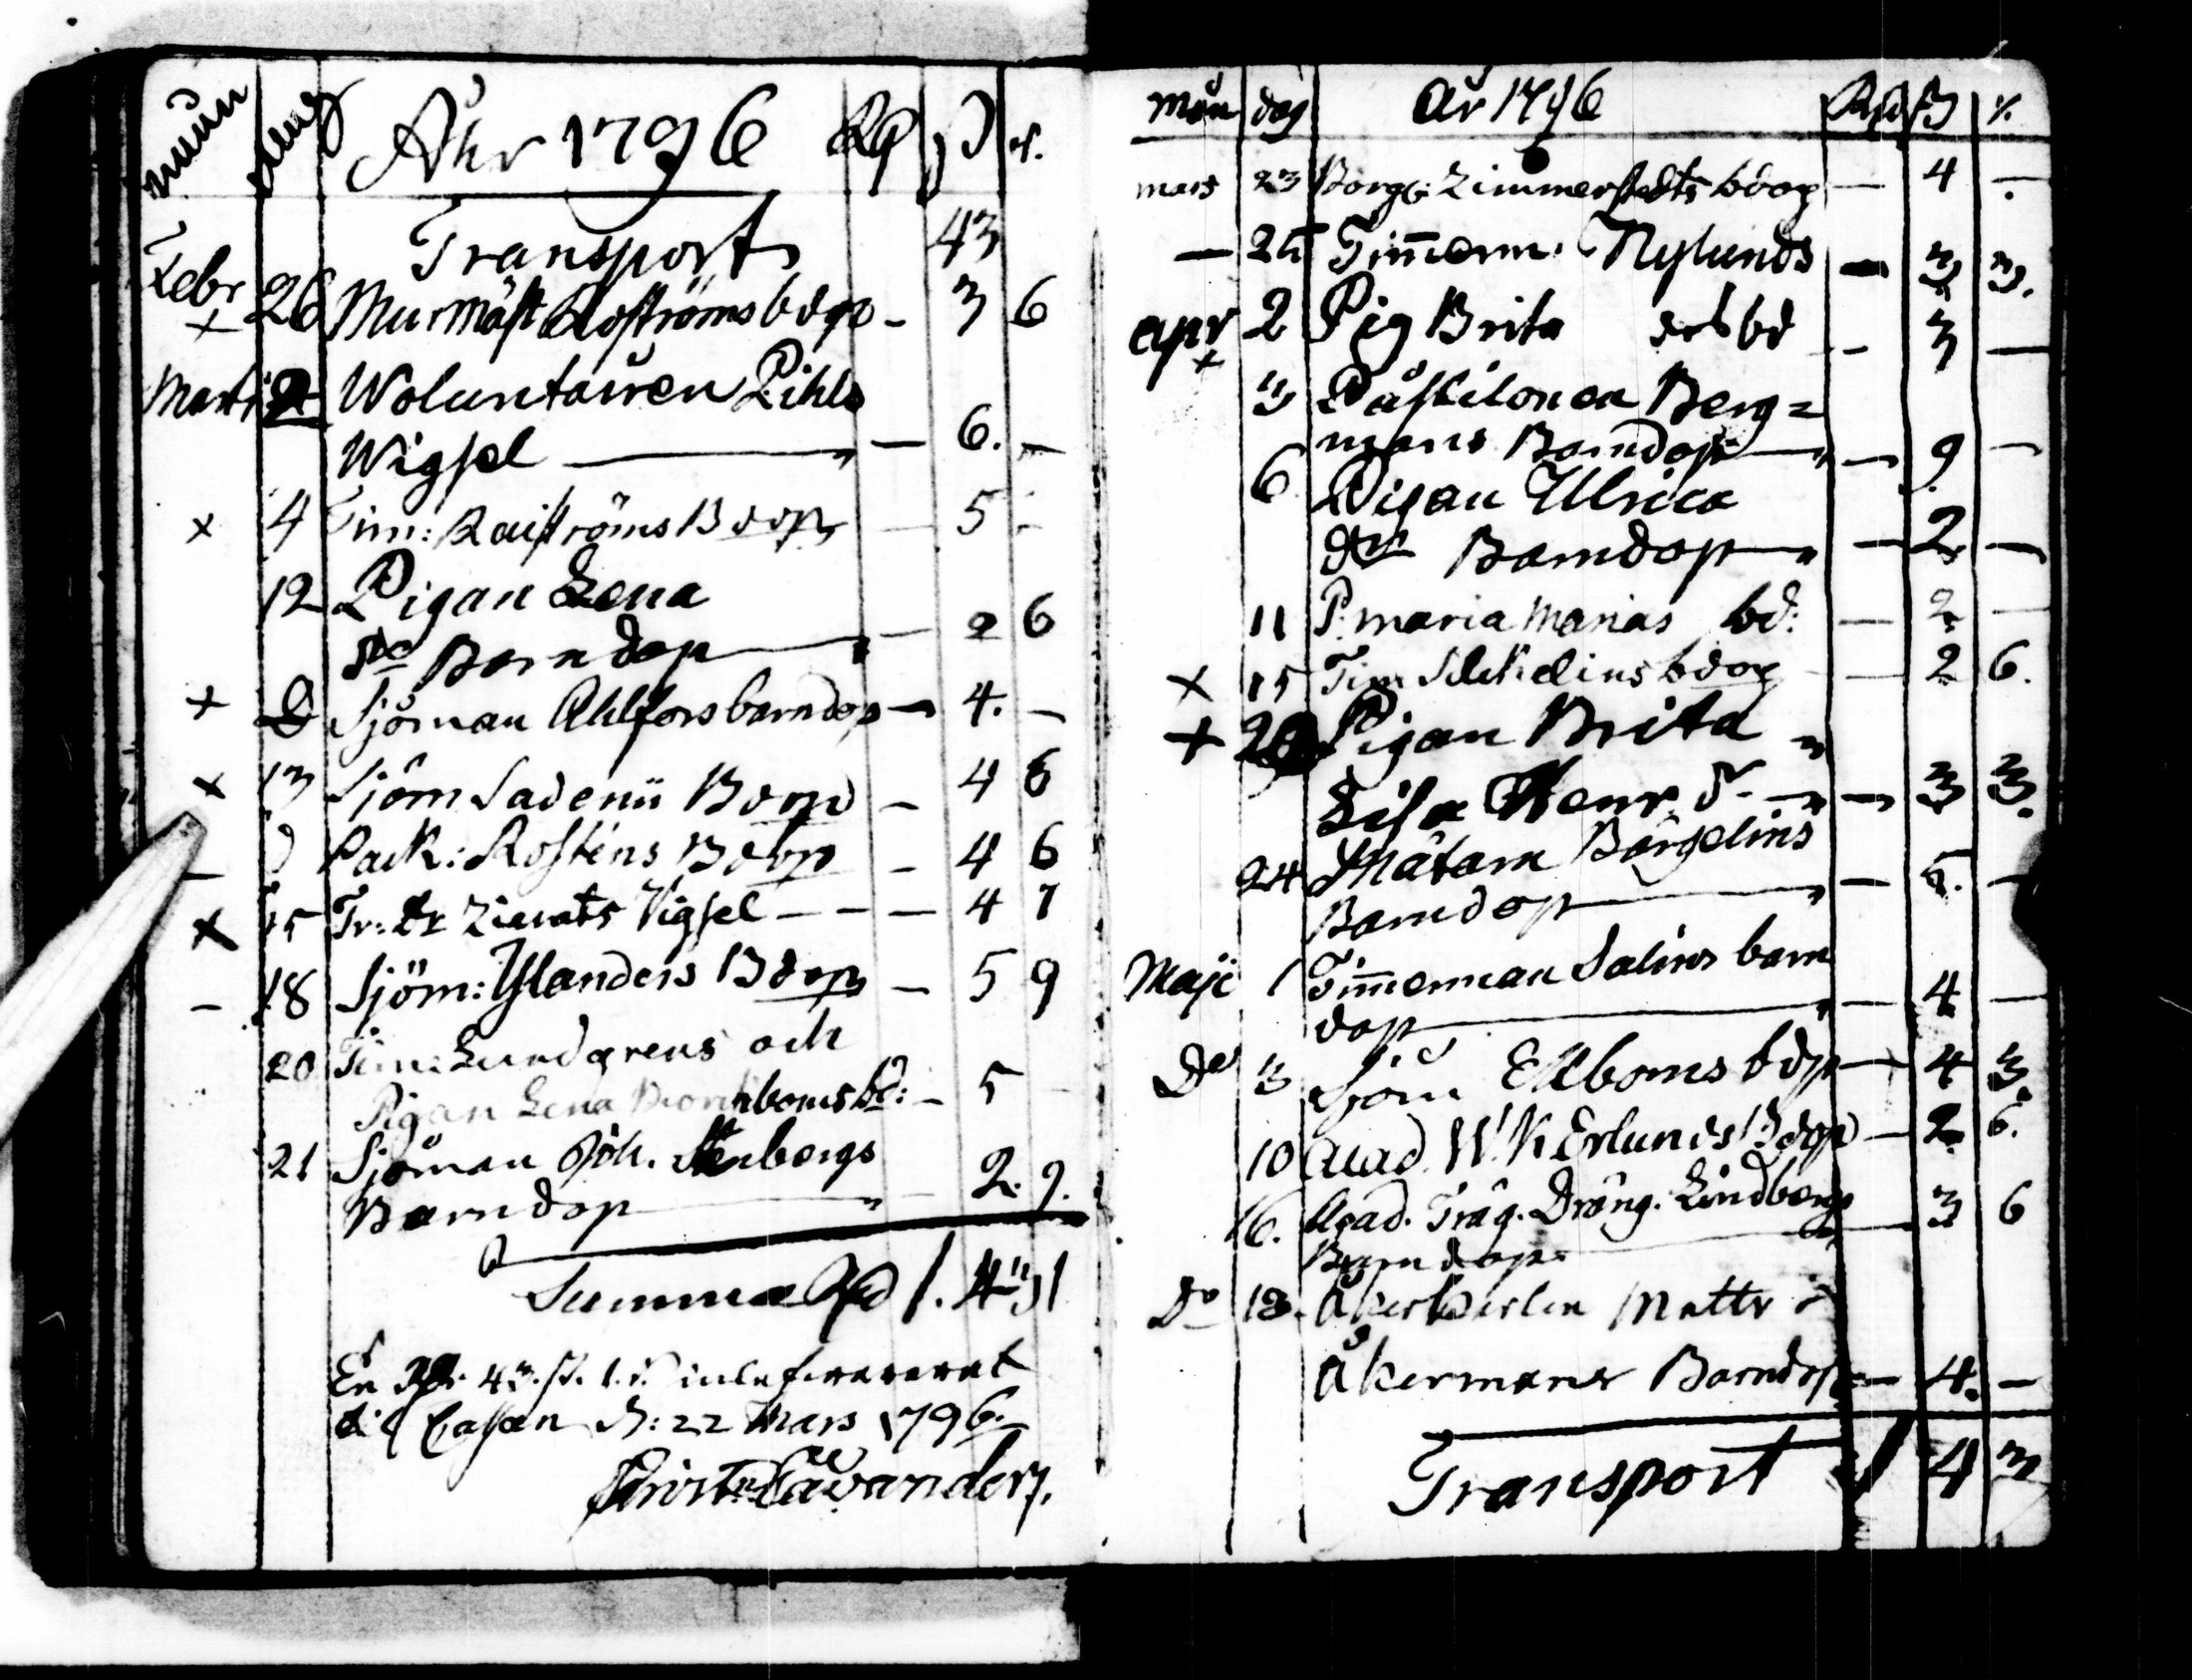 mån dag Åhr 1796 Rd ß r.
Transport 43
Febr 26 Murmäst Roströms bdop - 3 6
Marti 2 Woluntairen Pihls
Wigsel — 6. —
x 4 Tim: Raiströms Bdop — 5 -
12 Pigan Lena
Barndop — 2 6
x D Sjöman Ahlfors barndop — 4. —
x 13 Sjöm Sadenii Bdop — 4 6
— D Pack: Rosténs Bdop — 4 6
x 15 Tr: Zierats Vigsel — — — 4 7
— 18 Sjöm: Ylanders Bdop — 5 9
20 Tim: Lundgrens och
Pigan Lena bd: — 5 -
21 Sjöman Joh. Stenbergs
Barndop — 2. 9.
Summa Rd 1. 43 1
En Rd. 43. ß. 1. r. inlefwererat
til Cassan d: 22 Mars 1796.
Cavander.
mån dag År 1796 Rd ß r.
mars 23 Borg: Zimmerstedts bdop — 4 -
— 25 Timerm: Nylunds — 3 3.
apr 2 Pig Brita bd — 3 —
x 3 Påstilonen Berg=
mans Barndop — 9 —
6 Pigan Ulrica
Barndop — 2 —
11 P. maria Marias bd: — 2 —
x 15 Tim bdop — 2 6.
x 20 Pigan Brita
Lisa Henr. d. — 3 3.
24 Mätare Bärgelins
Barndop — 5. —
Maji 1 Timmerman Salins barn
dop — 4 —
Do 3 Sjöm Ekboms bdp — 4 3.
10 Acad. W. K Erlunds Bdop — 2 6.
16. Acad. Träg. Dräng. Lindbergs
Barndop — 3 6
Do 18. Åkerkarlen Matts
Åkermans Barndop — 4. —
Transport 1 4 3